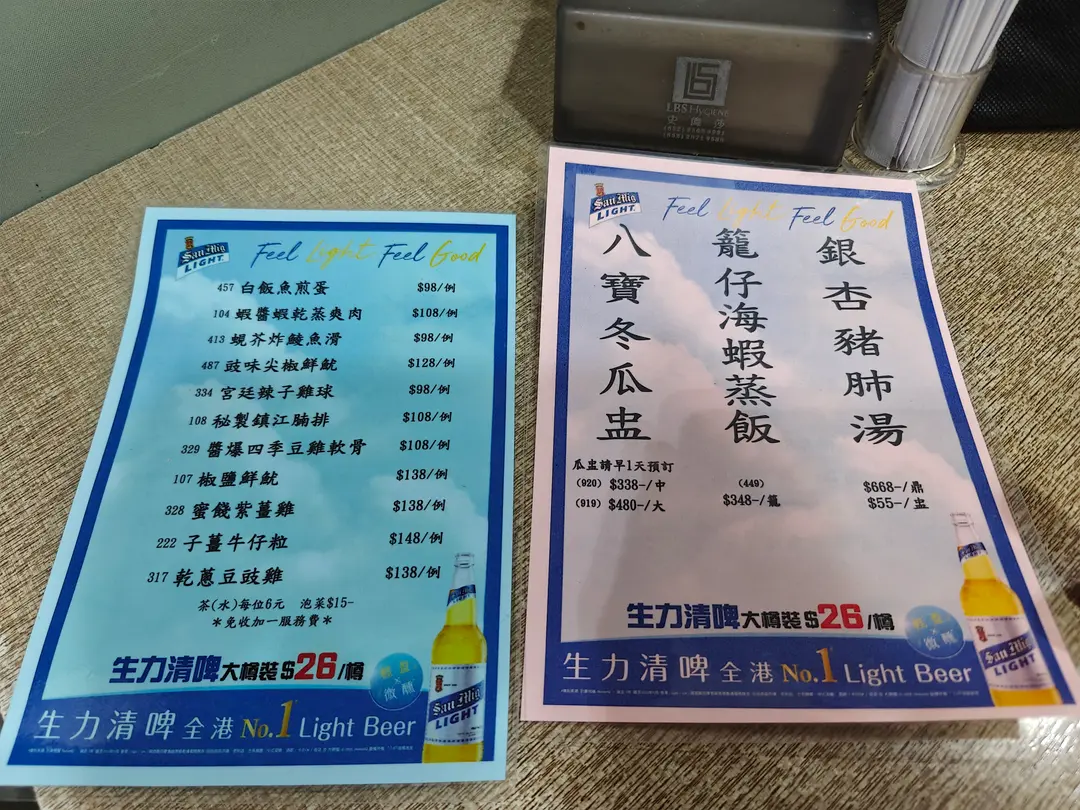 San Mig
LIGHT
Feel Light Feel Good
457 白飯魚煎蛋 $98/例
104 蝦醬蝦乾蒸爽肉 $108/例
413 蜆芥炸鯪魚滑 $98/例
487 豉味尖椒鮮魷 $128/例
334 宮廷辣子雞球 $98/例
108 秘製鎮江腩排 $108/例
329 醬爆四季豆雞軟骨 $108/例
107 椒鹽鮮魷 $138/例
328 蜜餞紫薑雞 $138/例
222 子薑牛仔粒 $148/例
317 乾蔥豆豉雞 $138/例
茶(水)每位6元 泡菜$15-
*免收加一服務費*
生力清啤大樽裝$26/樽
微醺
San Mig
LIGHT
生力清啤 全港 No.1 Light Beer
LBS HYGIENE
史偉莎
San Mig
LIGHT
Feel Light Feel Good
八寶冬瓜盅
籠仔海蝦蒸飯
銀杏豬肺湯
瓜盅請早1天預訂
(920) $338-/中
(919) $480-/大
(449)
$348-/籠
$668-/鼎
$55-/盅
生力清啤大樽裝$26/樽
微醺
San Mig
LIGHT
生力清啤 全港 No.1 Light Beer